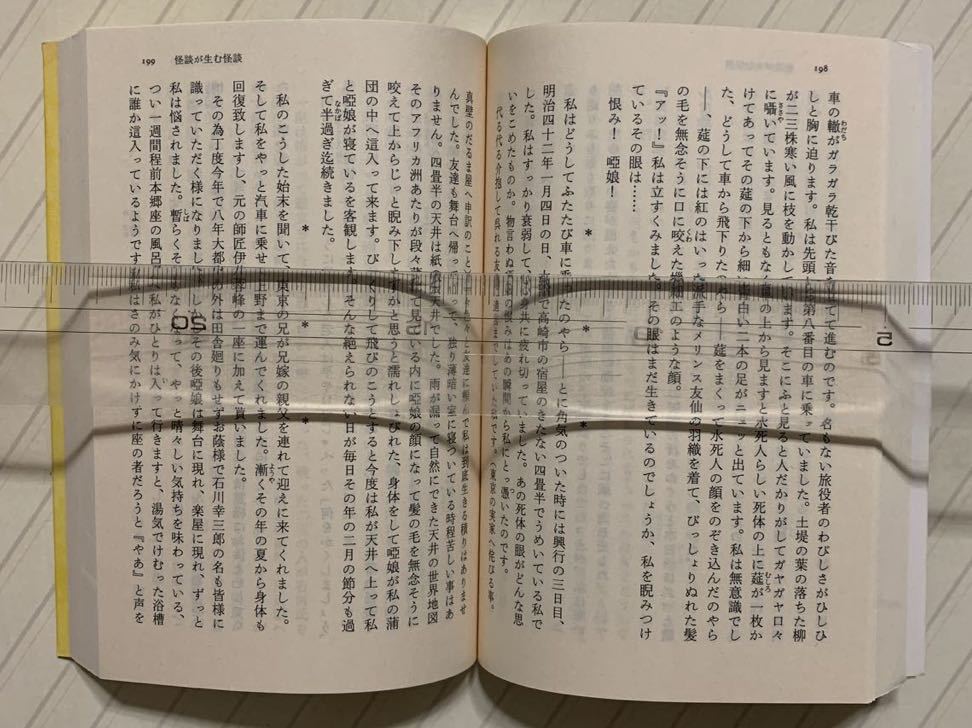 198
車の轍がガラガラ乾干びた音を立てて進むのです。名もない旅役者のわびしさがひしひ
しと胸に迫ります。私は先頭から第八番目の車に乗っていました。土堤の葉の落ちた柳
が二三株寒い風に枝を動かして居ます。そこにふと見ると人だかりがしてガヤガヤ口々
に囁いています。見るともなく車の上から見ますと水死人らしい死体の上に莚が一枚か
けてあってその莚の下から細い青白い二本の足がニュッと出ています。私は無意識でし
た、どうして車から飛下りたのやら――莚をまくって水死人の顔をのぞき込んだのやら
――、莚の下には紅のはいった派手なメリンス友仙の羽織を着て、びっしょりぬれた髪
の毛を無念そうに口に咬えた蠟細工のような顔。
『アッ！』私は立すくみました。その眼はまだ生きているのでしょうか、私を睨みつけ
ているその眼は……
恨み！　啞娘！
＊　＊　＊
私はどうしてふたたび車に乗ったのやら――とに角気のついた時には興行の三日目、
明治四十二年一月四日の日、高崎市の宿屋のきたない四畳半でうめいている私で
した。すっかり衰弱して、心身共に疲れ切っていました。あの死体の眼がどんな思
いをこめたものか。物言わぬ娘の恨みはあの瞬間から私にとっ憑いたのです。
代る代る介抱して呉れる友達に遺言までしていた私です。（東京の実家へ侘びる事。
199　怪談が生む怪談
真壁のだるま屋へ申訳のこと）色々と友達に頼んで私は到底生きる積りはありませ
んでした。友達も舞台へ帰って行って、独り薄暗い室に寝ついている時程苦しい事はあ
りません。四畳半の天井は紙貼り天井でした。雨が漏って自然にできた天井の世界地図
そのアフリカ洲あたりが段々と見ている内に啞娘の顔になって髪の毛を無念そうに
咬えて上からじっと睨み下しますかと思うと濡れしょびれた、身体をして啞娘が私の蒲
団の中へ這入って来ます。びっくりして飛びのこうとすると今度は私が天井へ上って私
と啞娘が寝ているを客観します。そんな絶えられない日が毎日その年の二月の節分も過
ぎて半過ぎ迄続きました。
＊　＊　＊
私のこうした始末を聞いて、東京の兄が兄嫁の親父を連れて迎えに来てくれました。
そして私をやっと汽車に乗せ、上野まで運んでくれました。漸くその年の夏から身体も
回復致しますし、元の師匠伊井蓉峰の一座に加えて貰いました。
その為丁度今年で八年大都市の外は田舎廻りもせずお蔭様で石川幸三郎の名も皆様に
識っていただく様になりました。しかしその後啞娘は舞台に現れ、楽屋に現れ、ずっと
私は悩されました。暫らくそれもなくなって、やっと晴々しい気持ちを味わっている、
つい一週間程前本郷座の風呂へ私がひとりは入って行きますと、湯気でけむった浴槽
に誰か這入っているようです私はさのみ気にかけずに座の者だろうと『やあ』と声を